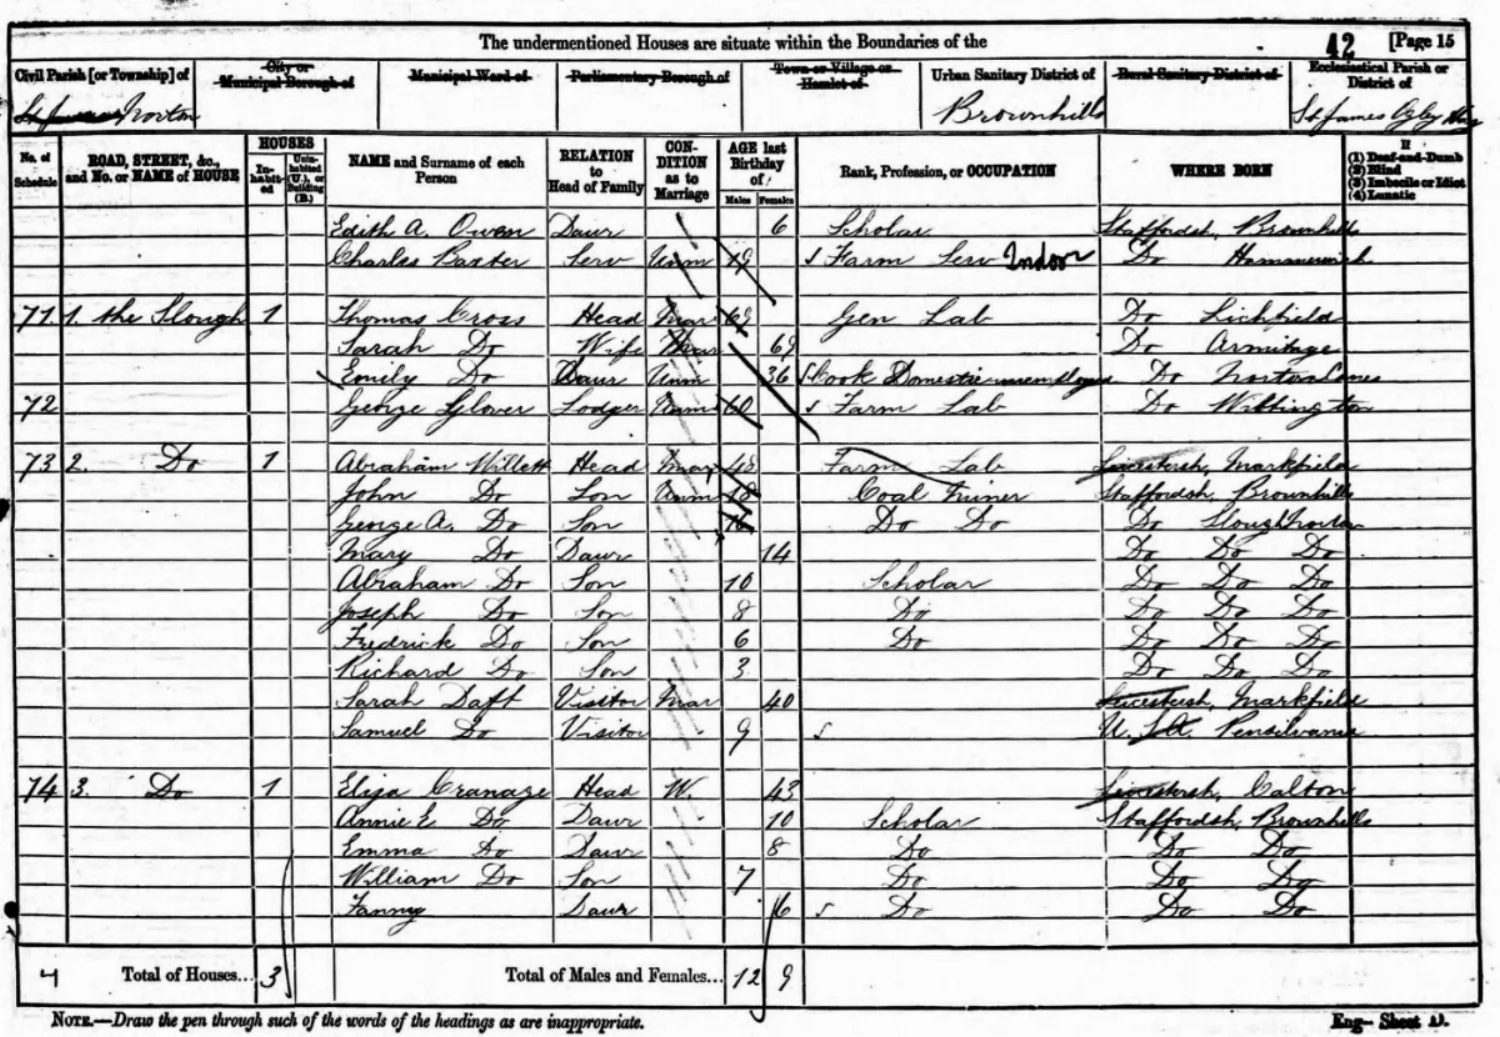 The undermentioned Houses are situate within the Boundaries of the
42 [Page 15
Civil Parish [or Township] of
City or Municipal Borough of
Municipal Ward of
Parliamentary Borough of
Town or Village or Hamlet of
Urban Sanitary District of
Rural Sanitary District of
Ecclesiastical Parish or District of
Norton Brownhills St James Ogley Hay
No. of Schedule
ROAD, STREET, &c., and No. or NAME of HOUSE
HOUSES
Inhabited
Uninhabited (U.), or Building (B.)
NAME and Surname of each Person
RELATION to Head of Family
CONDITION as to Marriage
AGE last Birthday of
Males Females
Rank, Profession, or OCCUPATION
WHERE BORN
If
(1) Deaf-and-Dumb
(2) Blind
(3) Imbecile or Idiot
(4) Lunatic
Edith A. Owen Daur 6 Scholar Staffordsh, Brownhills
Charles Baxter Serv Unm 19 Farm Serv Indoor Do Hammerwich
71 1. the Slough 1 Thomas Cross Head Mar 69 Gen Lab Do Lichfield
Sarah Do Wife Mar 69 Do Armitage
Emily Do Daur Unm 36 Cook Domestic unemployed Do Norton Canes
72 George Glover Lodger Unm 60 Farm Lab Do Wittington
73 2. Do 1 Abraham Willett Head Mar 48 Farm Lab Leicestersh, Markfield
John Do Son Unm 18 Coal Miner Staffordsh, Brownhills
George A. Do Son 16 Do Do Do Slough Norton
Mary Do Daur 14 Do Do Do
Abraham Do Son 10 Scholar Do Do Do
Joseph Do Son 8 Do Do Do Do
Fredrick Do Son 6 Do Do Do Do
Richard Do Son 3 Do Do Do
Sarah Daft Visitor Mar 40 Leicestersh, Markfield
Samuel Do Visitor 9 U. Pensilvania
74 3. Do 1 Eliza Cranage Head W. 43 Leicestersh, Calton
Annie E Do Daur 10 Scholar Staffordsh, Brownhills
Emma Do Daur 8 Do Do Do
William Do Son 7 Do Do Do
Fanny Daur 6 Do Do Do
4 Total of Houses... 3 Total of Males and Females... 12 9
NOTE.—Draw the pen through such of the words of the headings as are inappropriate.
Eng— Sheet D.